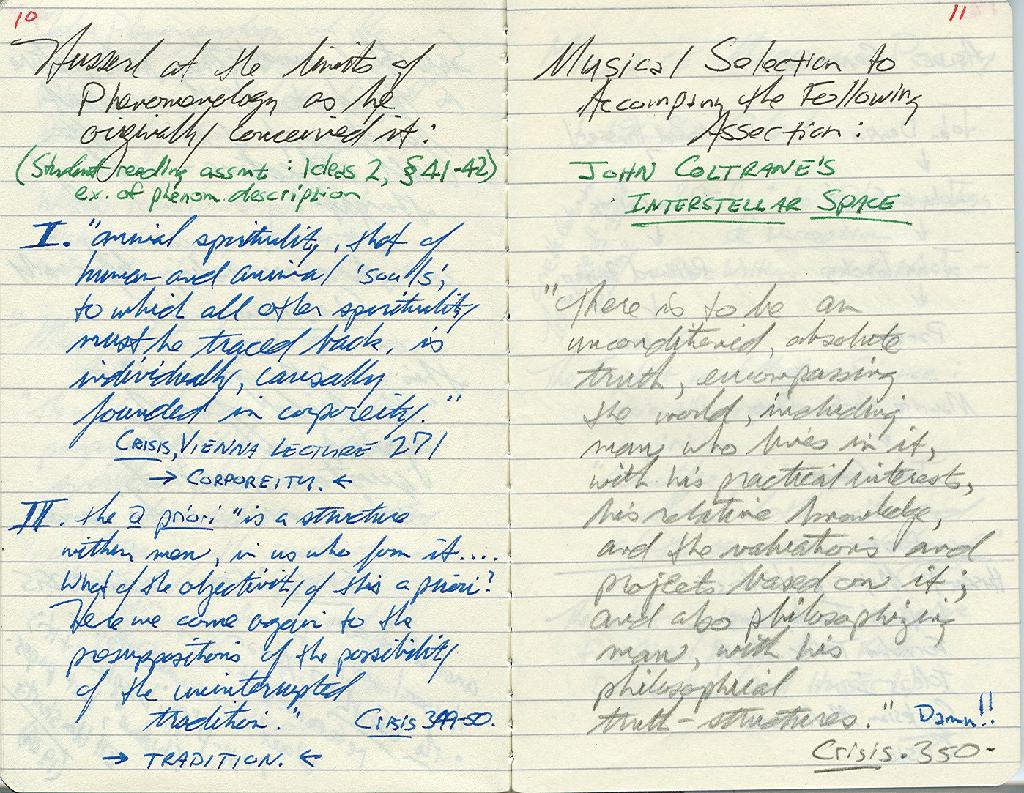 10
Husserl at the limits of
Phenomenology as he
originally conceived it:
(Student reading assmt: Ideas 2, §41-42)
ex. of phenom. description
I. "animal spirituality, that of
human and animal 'souls',
to which all other spirituality
must be traced back, is
individually, causally
founded in corporeity."
Crisis, Vienna Lecture 271
→ CORPOREITY. ←
II. the a priori "is a structure
within man, in us who form it....
What of the objectivity of this a priori?
Here we come again to the
presuppositions of the possibility
of the uninterrupted
tradition." Crisis 349-50.
→ TRADITION. ←
11
Musical Selection to
Accompany the Following
Assection:
JOHN COLTRANE'S
INTERSTELLAR SPACE
"there is to be an
unconditioned, absolute
truth, encompassing
the world, including
man who lives in it,
with his practical interests,
his relative knowledge,
and the valuations and
projects based on it;
and also philosophizing
man, with his
philosophical
truth-structures." Damn!!
Crisis. 350-